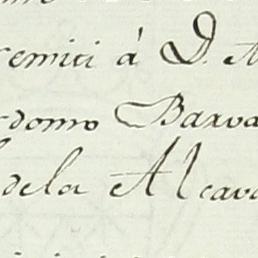 remiti á D. A
domo Barva
dela Alcava